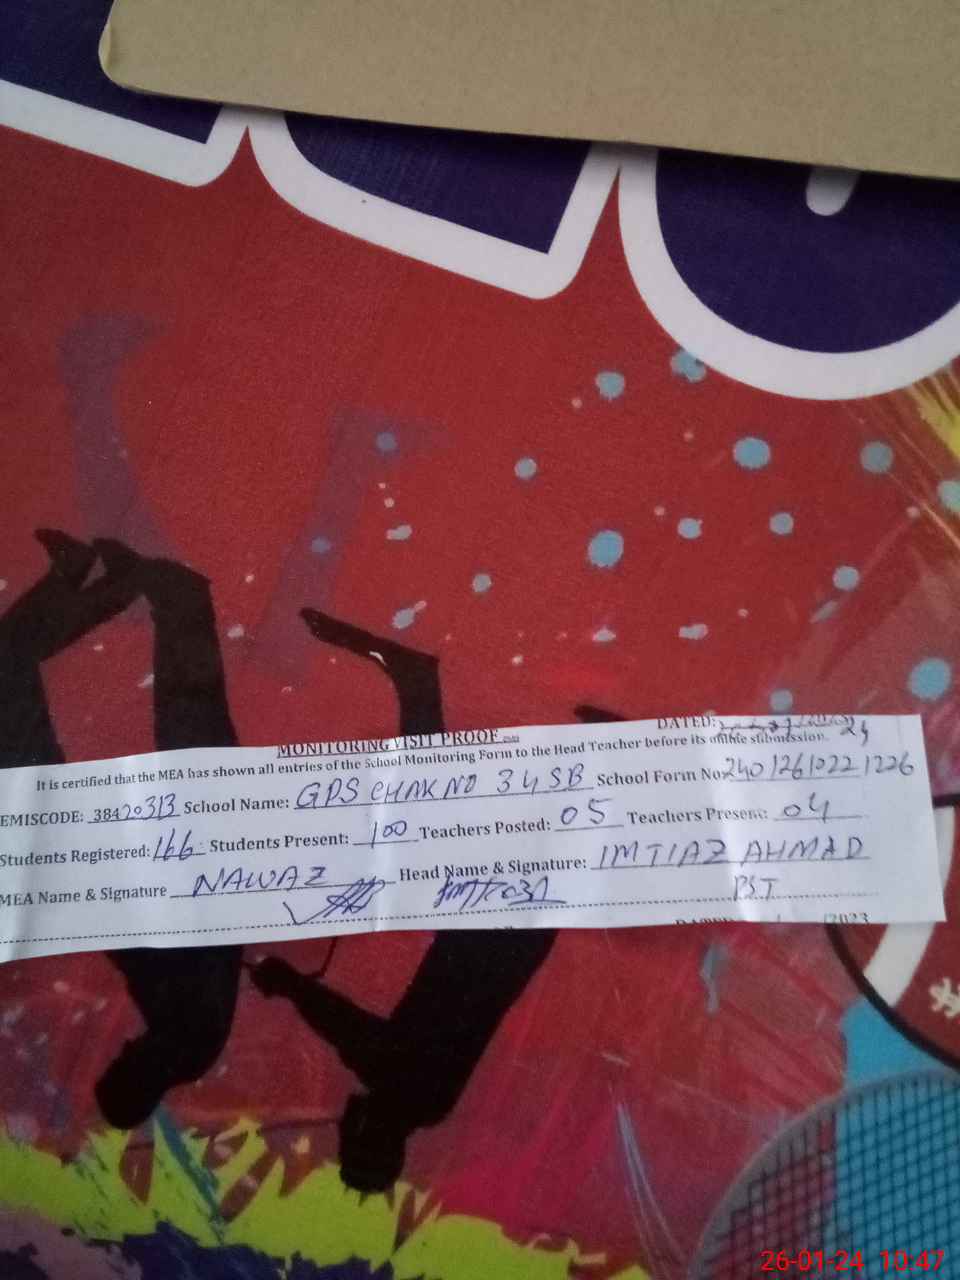 DATED:
MONITORING VISIT PROOF
It is certified that the MEA has shown all entries of the School Monitoring Form to the Head Teacher before its online submission.
EMISCODE: 38420313 School Name: GPS CHAK NO 34 SB School Form No. 2401261022 1226
Students Registered: 166 Students Present: 100 Teachers Posted: 05 Teachers Present: 04
MEA Name & Signature NAWAZ Head Name & Signature: IMTIAZ AHMAD
PST
26-01-24 10:47